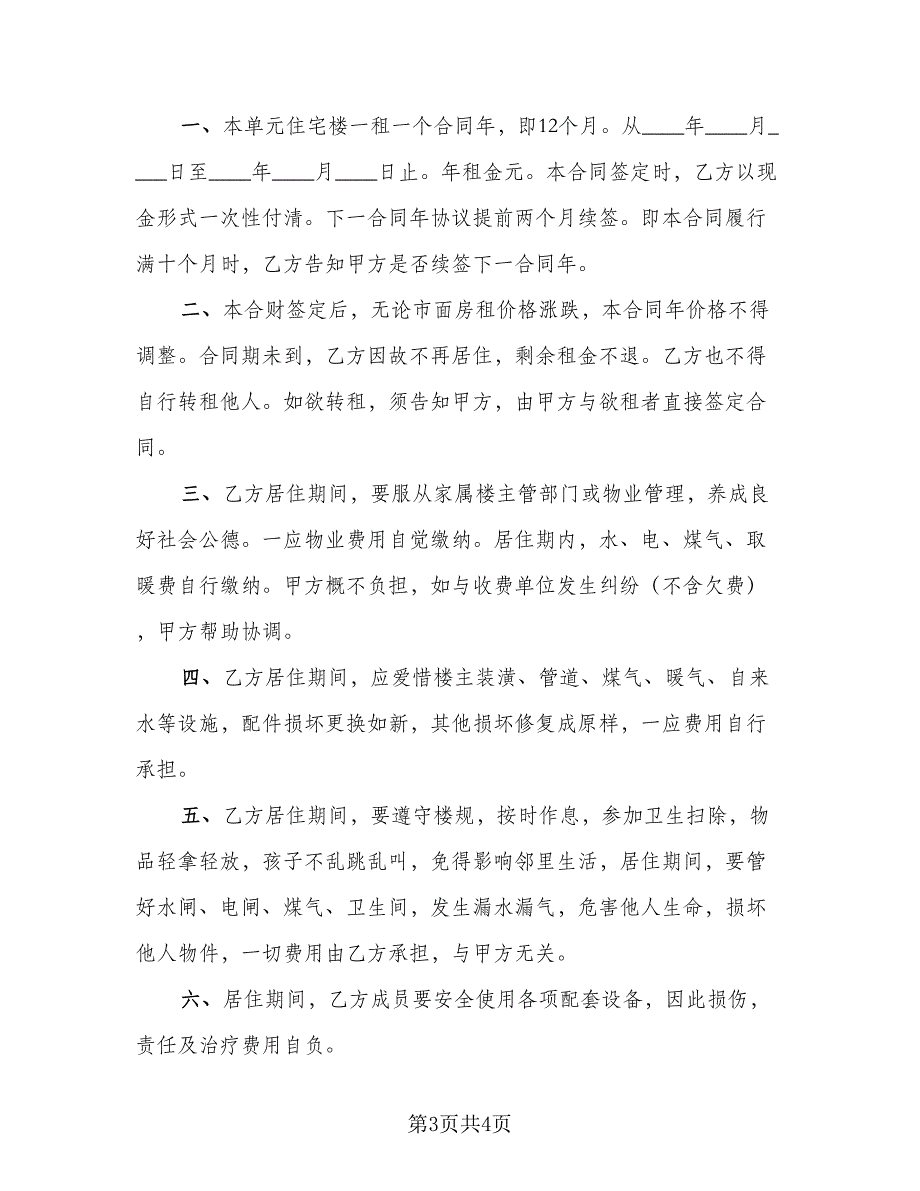 一、本单元住宅楼一租一个合同年，即12个月。从____年____月_
___日至____年____月____日止。年租金元。本合同签定时，乙方以现
金形式一次性付清。下一合同年协议提前两个月续签。即本合同履行
满十个月时，乙方告知甲方是否续签下一合同年。
二、本合财签定后，无论市面房租价格涨跌，本合同年价格不得
调整。合同期未到，乙方因故不再居住，剩余租金不退。乙方也不得
自行转租他人。如欲转租，须告知甲方，由甲方与欲租者直接签定合
同。
三、乙方居住期间，要服从家属楼主管部门或物业管理，养成良
好社会公德。一应物业费用自觉缴纳。居住期内，水、电、煤气、取
暖费自行缴纳。甲方概不负担，如与收费单位发生纠纷（不含欠费）
，甲方帮助协调。
四、乙方居住期间，应爱惜楼主装潢、管道、煤气、暖气、自来
水等设施，配件损坏更换如新，其他损坏修复成原样，一应费用自行
承担。
五、乙方居住期间，要遵守楼规，按时作息，参加卫生扫除，物
品轻拿轻放，孩子不乱跳乱叫，免得影响邻里生活，居住期间，要管
好水闸、电闸、煤气、卫生间，发生漏水漏气，危害他人生命，损坏
他人物件，一切费用由乙方承担，与甲方无关。
六、居住期间，乙方成员要安全使用各项配套设备，因此损伤，
责任及治疗费用自负。
第3页共4页